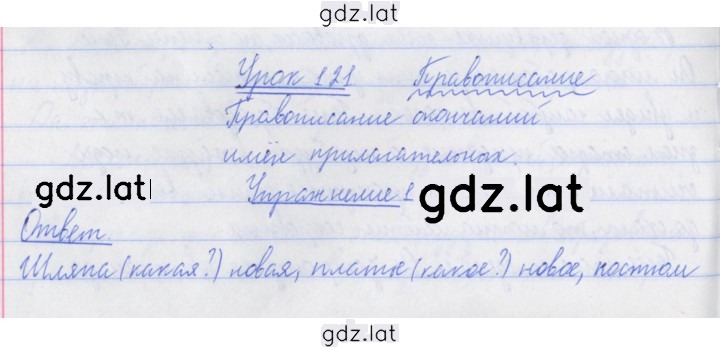 gdz.lat
Урок 121 Правописание
Правописание окончаний
имён прилагательных.
gdz.lat
Упражнение 1
gdz.lat
Ответ
Шляпа (какая?) новая, платье (какое?) новое, костюм
gdz.lat